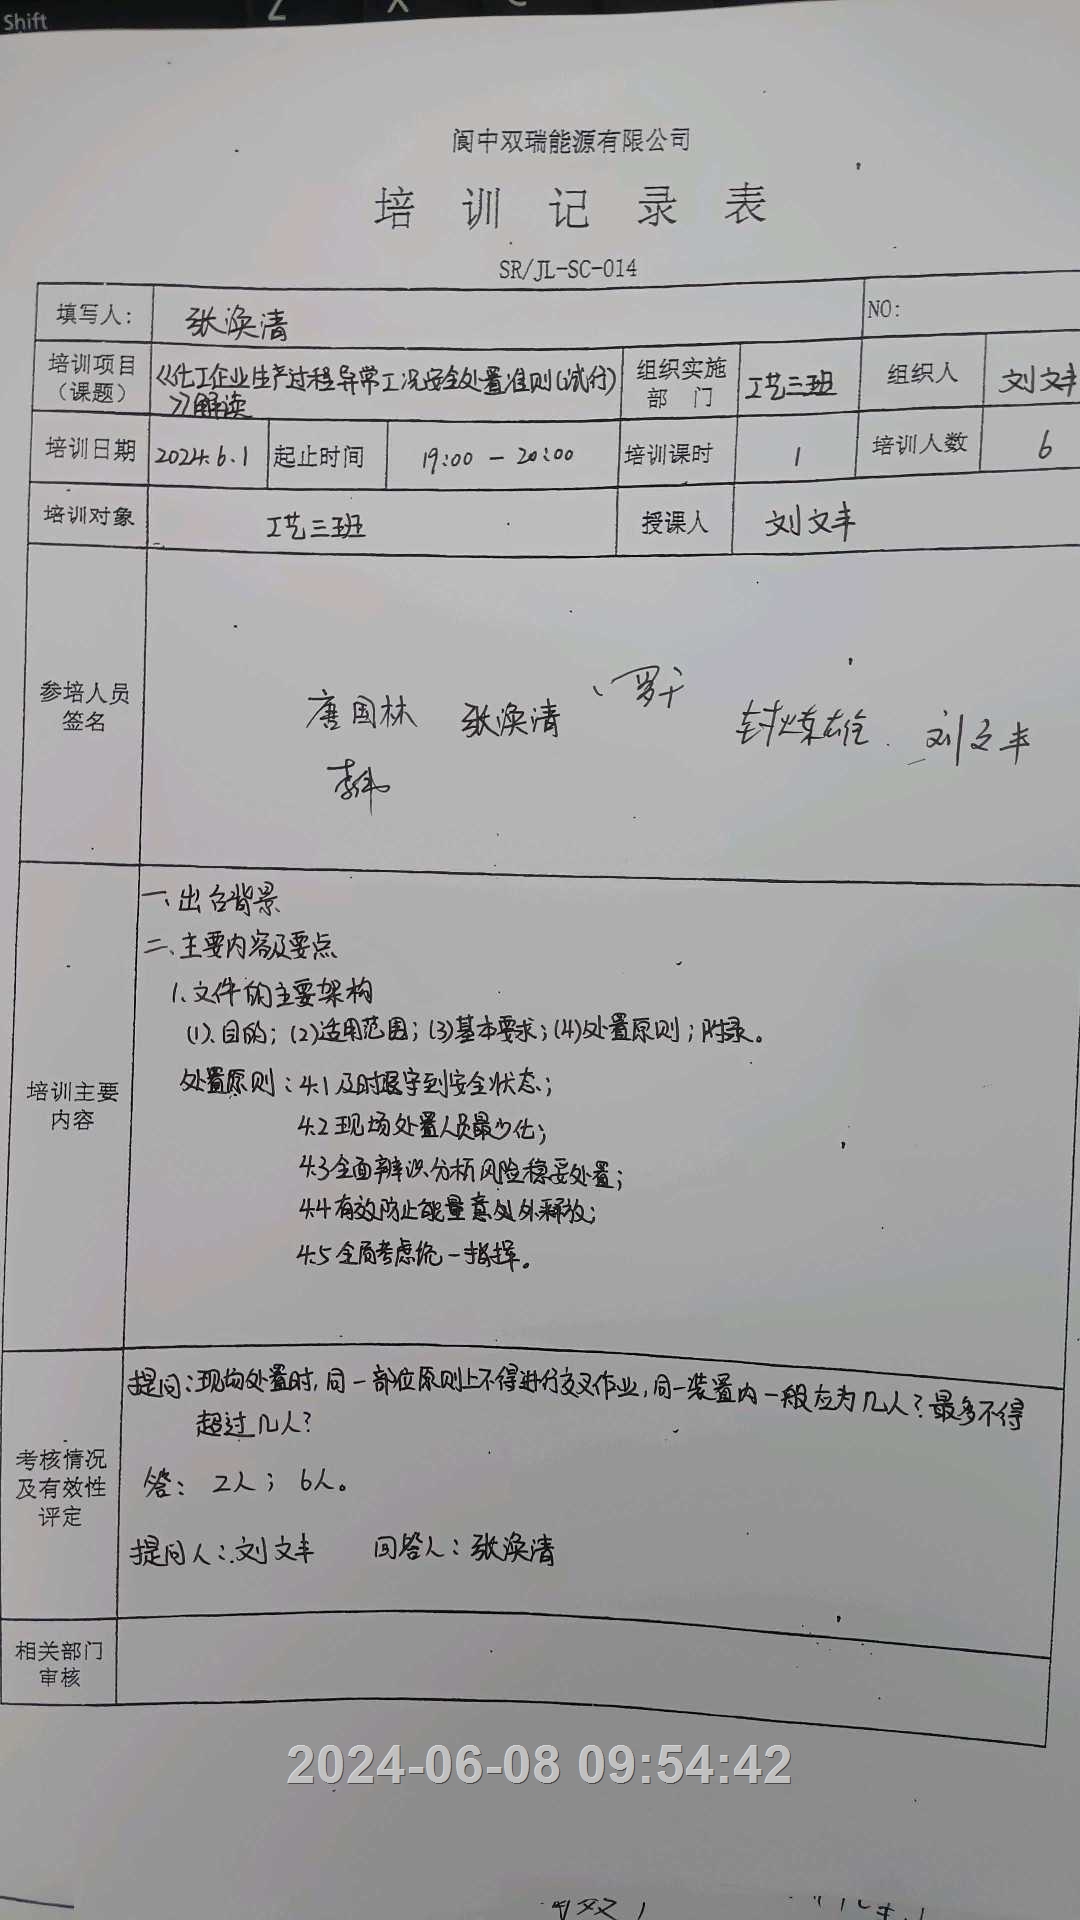 Shift
阆中双瑞能源有限公司
培训记录表
SR/JL-SC-014
填写人: 张涣清 NO:
培训项目（课题） 《化工企业生产过程异常工况安全处置准则(试行)》解读 组织实施部门 工艺三班 组织人 刘文丰
培训日期 2024.6.1 起止时间 19:00 — 20:00 培训课时 1 培训人数 6
培训对象 工艺三班 授课人 刘文丰
参培人员签名
唐国林 张涣清 罗千 封炼雄 刘文丰
李伟
培训主要内容
一、出台背景
二、主要内容及要点
1、文件的主要架构
(1)、目的；(2)适用范围；(3)基本要求；(4)处置原则；附录。
处置原则：4.1 及时退守到安全状态；
4.2 现场处置人员最少化；
4.3 全面辨识分析风险稳妥处置；
4.4 有效防止能量意外释放；
4.5 全局考虑统一指挥。
考核情况及有效性评定
提问：现场处置时，同一部位原则上不得进行交叉作业，同一装置内一般应为几人？最多不得
超过几人？
答： 2人； 6人。
提问人：刘文丰 回答人：张涣清
相关部门审核
2024-06-08 09:54:42